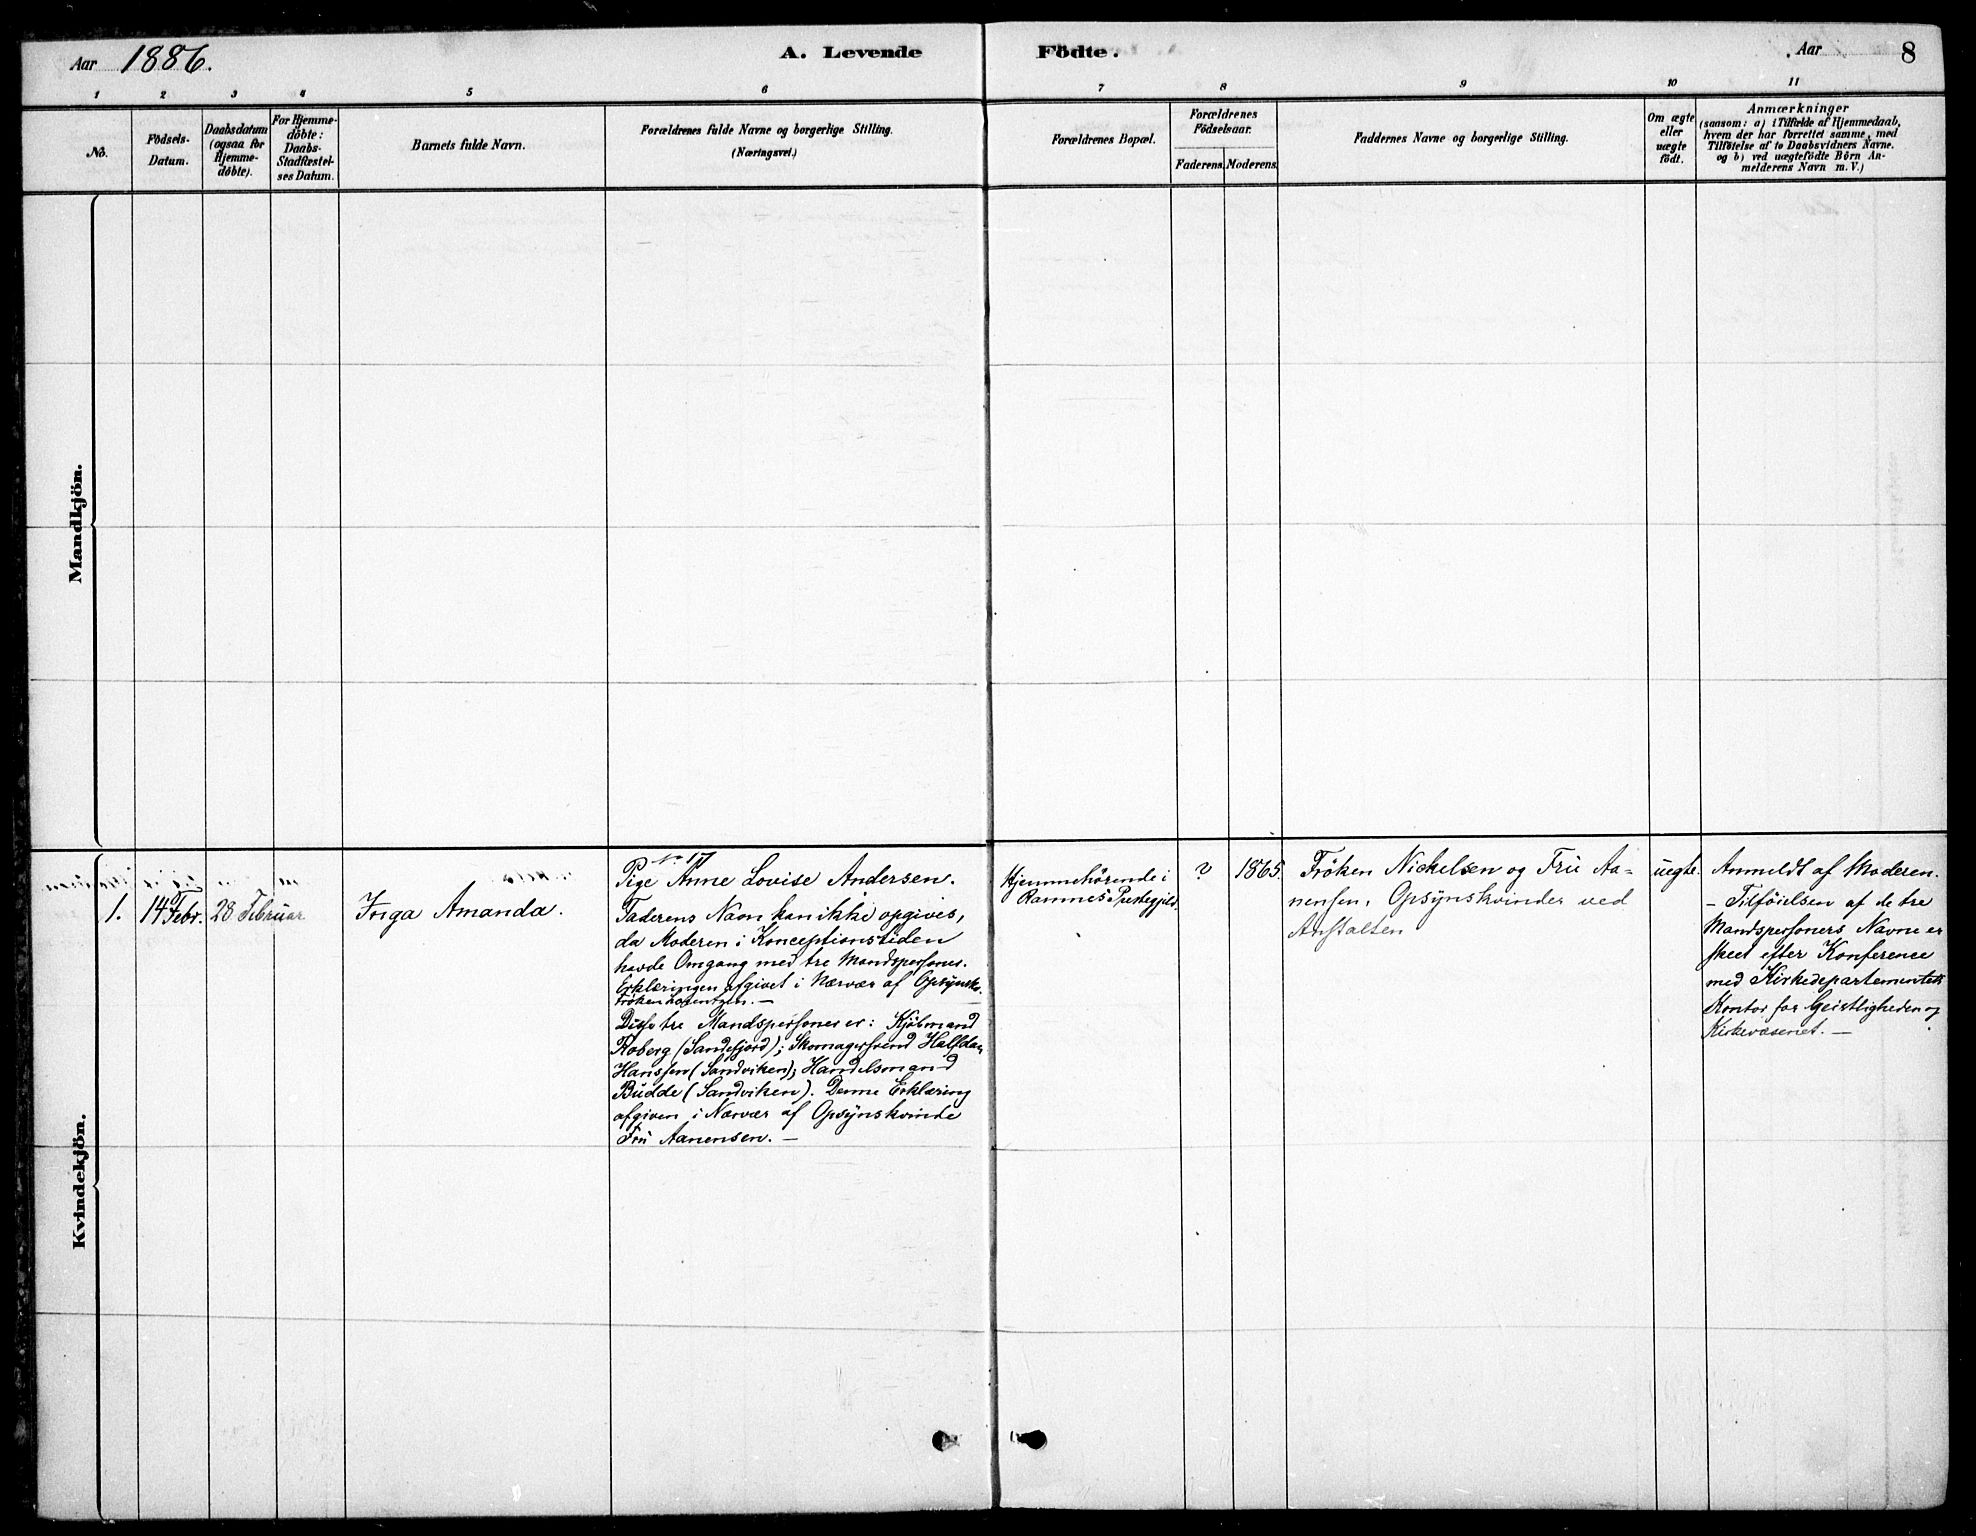 Aar 1886. A. Levende Födte. Aar 8
1 2 3 4 5 6 7 8 9 10 11
No.
Födsels-
Datum.
Daabsdatum
(ogsaa for
Hjemme-
döbte).
For Hjemme-
döbte:
Daabs-
Stadfæstel-
ses Datum.
Barnets fulde Navn.
Forældrenes fulde Navne og borgerlige Stilling.
(Næringsvei.)
Forældrenes Bopæl.
Forældrenes
Födselsaar.
Faderens. Moderens.
Faddernes Navne og borgerlige Stilling.
Om ægte
eller
uægte
födt.
Anmærkninger
(saasom: a) i Tilfælde af Hjemmedaab,
hvem der har forrettet samme, med
Tilföielse af to Daabsvidners Navne.
og b) ved uægtefödte Börn An-
melderens Navn m. V.)
Mandkjön.
Kvindekjön.
1.
14 Febr.
28 Februar
Inga Amanda.
No 17
Pige Anne Lovise Andersen.
Faderens Navn kan ikke opgives,
da Moderen i Konceptionstiden
havde Omgang med tre Mandspersoner.
Erklæringen afgivet i Nærvær af Opsynsk.
Fröken
Disse tre Mandspersoner er: Kjöbmand
Roberg (Sandefjord); Skomagersvend Halfdan
Hanssen (Sandviken); Handelsmand
Budde (Sandviken). Denne Erklæring
afgiven i Nærvær af Opsynskvinde
Fru Aanensen. —
Hjemmehörende i
Ramnes Prestegjeld.
?
1865.
Fröken Nickelsen og Fru Aa-
nensen, Opsynskvinder ved
Anstalten
uegte.
Anmeldt af Moderen.
– Tilföielsen af de tre
Mandspersoners Navne er
skeet efter Konference
med Kirkedepartementets
Kontor for Geistligheden og
Kirkevæsenet. —